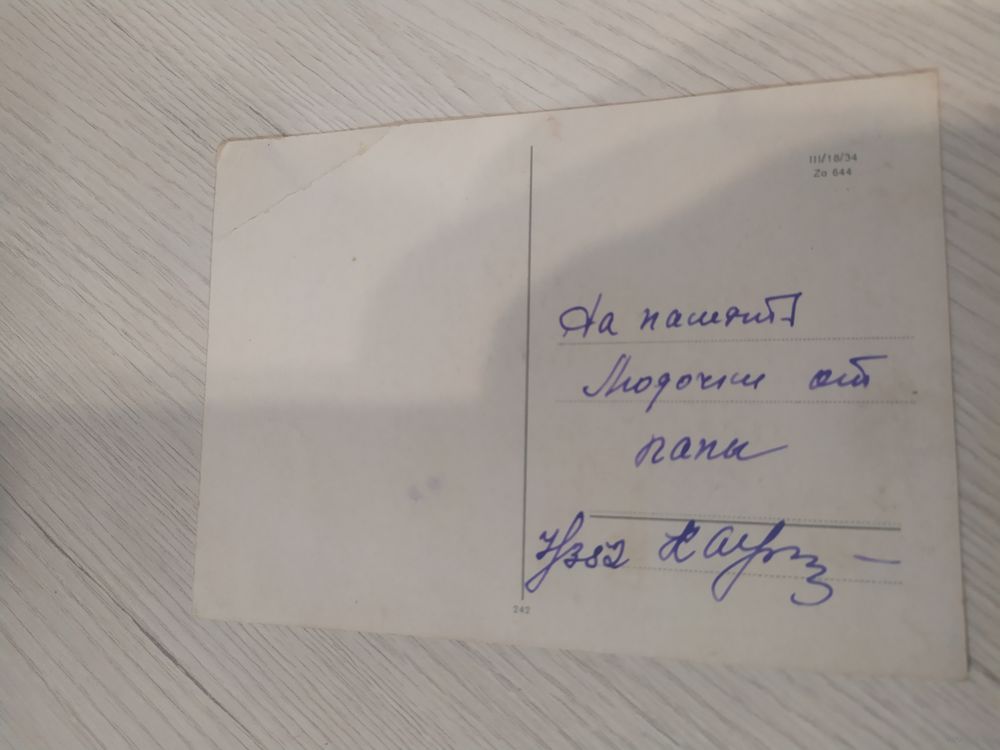 III/18/34
Zo 644
На память
Людочки от
папы
242